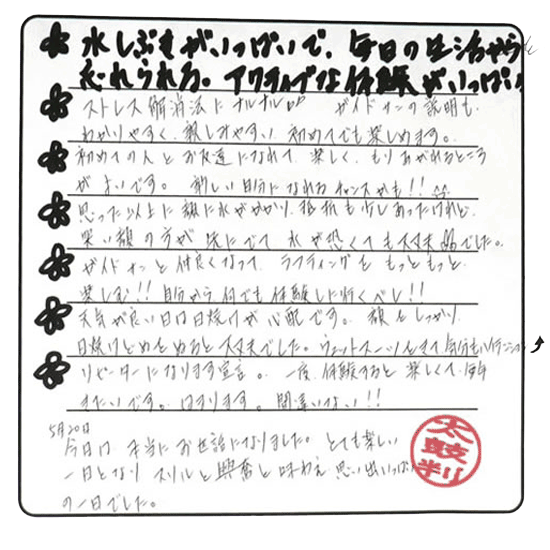 水しぶきがいっぱいで、毎日の生活から
忘れられる。アクティブな体験がいっぱい
ストレス解消法にナルナル ガイドサンの説明も、
わかりやすく、親しみやすい 初めてでも楽しめます。
初めての人とお友達になれて、楽しく、もりあがれるところ
がよいです。新しい自分になれるチャンスかも!!
思った以上に顔に水がかかり、抵抗も少しあったけれど、
笑い顔の方が先にでて 水が恐くても大丈夫でした。
ガイドサンと仲良くなって、ラフティングをもっともっと、
楽しむ!! 自分から何でも体験しに行くベシ!!
天気が良い日は日焼けが心配です。顔をしっかり、
日焼けどめをぬると大丈夫でした。ウェットスーツをきて、気分もハイテンション
リピーターになります宣言。一度、体験すると楽しくて、毎年
きたいです。はまります。間違いない!!
5月20日
今日は、本当にお世話になりました。とても楽しい
一日となり スリルと興奮と味わえ 思い出いっぱい
の一日でした。
太鼓判